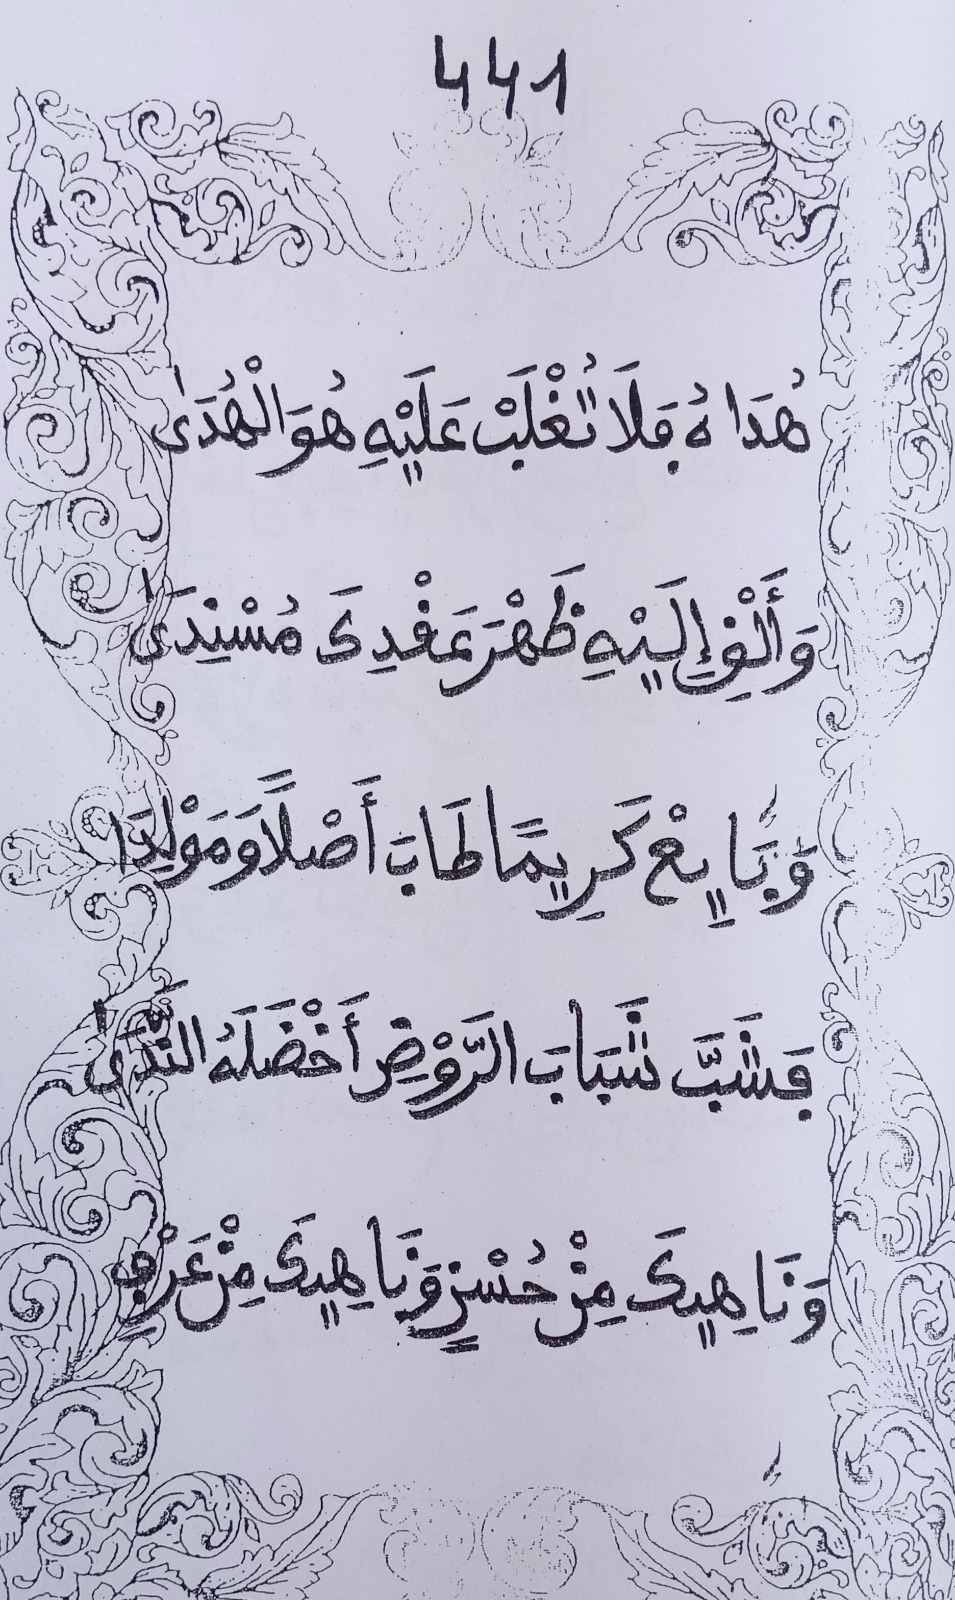 441
هُدَاهُ فَلَا تُغْلَبْ عَلَيْهِ هُوَ الْهُدَىٰ
وَأَلْقِ إِلَيْهِ ظَهْرَ عَقْدِكَ مُسْنِدَىٰ
وَبَايِعْ كَرِيمًا طَابَ أَصْلًا وَمَوْلِدَا
فَشَبَّ شَبَابَ الرَّوْضِ أَخْضَلَهُ النَّدَىٰ
وَنَاهِيكَ مِنْ حُسْنٍ وَنَاهِيكَ مِنْ عَرْفِ